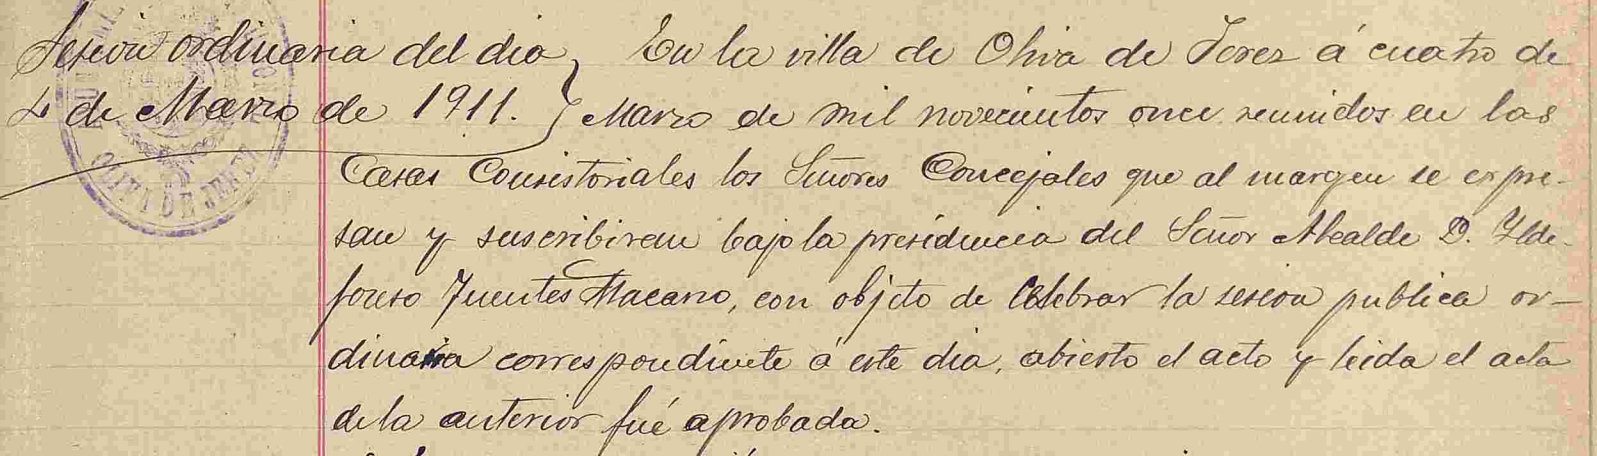 Sesion ordinaria del dia
4 de Marzo de 1911.
En la villa de Oliva de Jerez á cuatro de
Marzo de mil novecientos once reunidos en las
Casas Consistoriales los Señores Concejales que al margen se expre-
san y suscribiran bajo la presidencia del Señor Alcalde D. Ylde-
fonso Fuentes Macarro, con objeto de Celebrar la sesion publica or-
dinaria correspondiente á este dia, abierto el acto y leida el acta
de la anterior fué aprobada.
OLIVA DE JEREZ